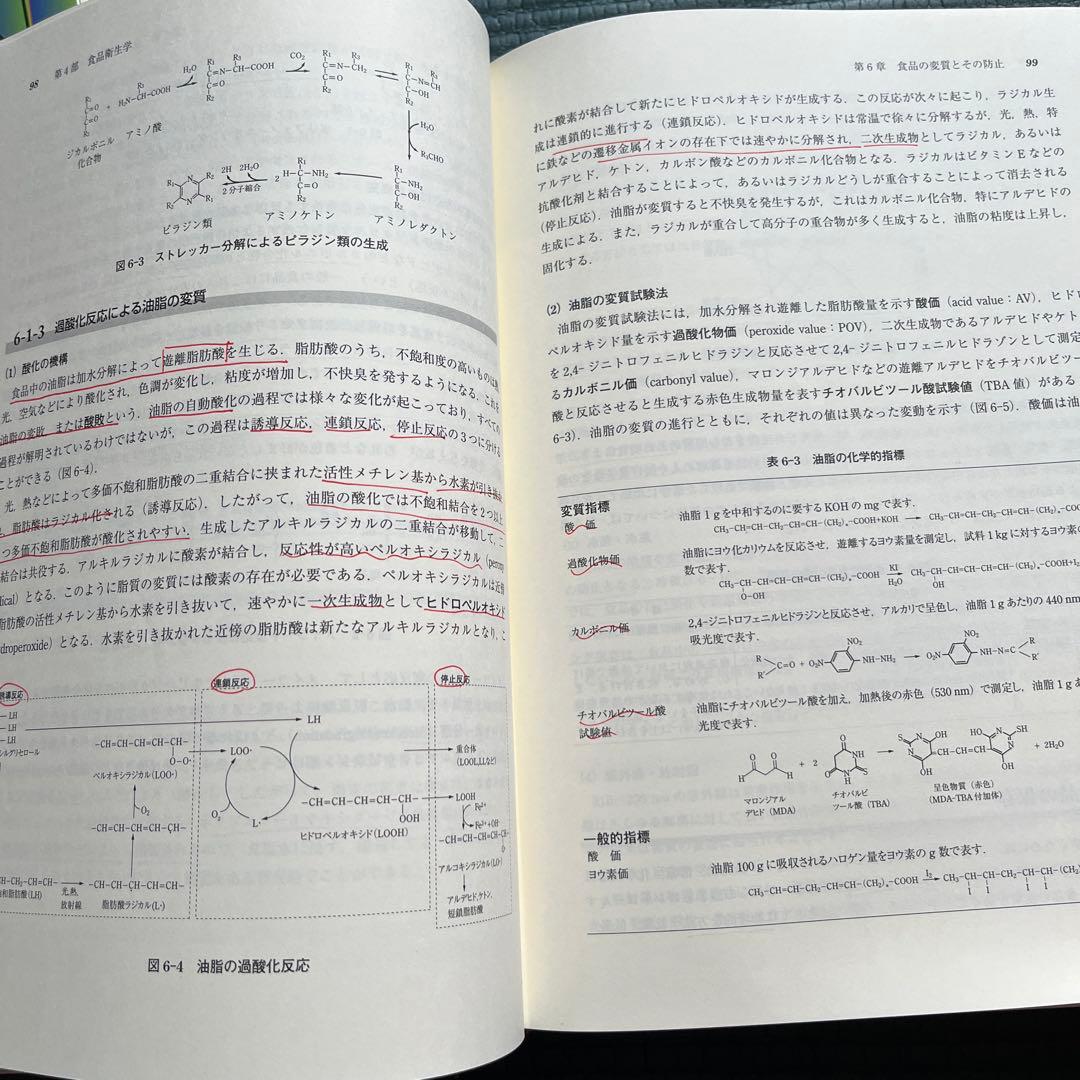 98 第4部 食品衛生学
R₁ C=O C=O R₂ + H₂N-CH-COOH R₃
H₂O
R₁ C=N-CH-COOH R₃ C=O R₂
CO₂
R₁ R₃ C=N-CH₂ C=O R₂
R₁ R₃ C-N=CH C-OH R₂
ジカルボニル化合物
アミノ酸
H₂O
R₃CHO
R₁ C-NH₂ C-OH R₂
2 H-C-NH₂ C=O R₁ R₂
2H 2H₂O
2分子縮合
ピラジン類
アミノケトン
アミノレダクトン
図6-3 ストレッカー分解によるピラジン類の生成
6-1-3 過酸化反応による油脂の変質
(1) 酸化の機構
食品中の油脂は加水分解によって遊離脂肪酸を生じる．脂肪酸のうち，不飽和度の高いものは
光，空気などにより酸化され，色調が変化し，粘度が増加し，不快臭を発するようになる．これを
油脂の変敗，または酸敗という．油脂の自動酸化の過程では様々な変化が起こっており，すべての
過程が解明されているわけではないが，この過程は誘導反応，連鎖反応，停止反応の3つに分ける
ことができる（図6-4）．
光，熱などによって多価不飽和脂肪酸の二重結合に挟まれた活性メチレン基から水素が引き抜か
脂肪酸はラジカル化される（誘導反応）．したがって，油脂の酸化では不飽和結合を2つ以上
つ多価不飽和脂肪酸が酸化されやすい．生成したアルキルラジカルの二重結合が移動して，二
結合は共役する．アルキルラジカルに酸素が結合し，反応性が高いペルオキシラジカル（peroxy
dical）となる．このように脂質の変質には酸素の存在が必要である．ペルオキシラジカルは近傍
脂肪酸の活性メチレン基から水素を引き抜いて，速やかに一次生成物としてヒドロペルオキシド
droperoxide）となる．水素を引き抜かれた近傍の脂肪酸は新たなアルキルラジカルとなり，こ
誘導反応
連鎖反応
停止反応
LH
LH
LH
シルグリセロール
-CH=CH-CH=CH-CH-
O-O·
ペルオキシラジカル(LOO·)
O₂
脂肪酸ラジカル(L·)
光，熱，
放射線
和脂肪酸(LH)
LH
LOO·
O₂
L·
-CH=CH-CH=CH-CH-
OOH
ヒドロペルオキシド(LOOH)
重合体
(LOOL,LLなど)
LOOH
Fe²⁺
Fe³⁺+OH⁻
-CH=CH-CH=CH-CH-
アルコキシラジカル(LO·)
アルデヒド,ケトン,
短鎖脂肪酸
図6-4 油脂の過酸化反応
第6章 食品の変質とその防止 99
れに酸素が結合して新たにヒドロペルオキシドが生成する．この反応が次々に起こり，ラジカル生
成は連鎖的に進行する（連鎖反応）．ヒドロペルオキシドは常温で徐々に分解するが，光，熱，特
に鉄などの遷移金属イオンの存在下では速やかに分解され，二次生成物としてラジカル，あるいは
アルデヒド，ケトン，カルボン酸などのカルボニル化合物となる．ラジカルはビタミンEなどの
抗酸化剤と結合することによって，あるいはラジカルどうしが重合することによって消去される
（停止反応）．油脂が変質すると不快臭を発生するが，これはカルボニル化合物，特にアルデヒドの
生成による．また，ラジカルが重合して高分子の重合物が多く生成すると，油脂の粘度は上昇し，
固化する．
(2) 油脂の変質試験法
油脂の変質試験法には，加水分解され遊離した脂肪酸量を示す酸価（acid value：AV），ヒドロ
ペルオキシド量を示す過酸化物価（peroxide value：POV），二次生成物であるアルデヒドやケト
を2,4-ジニトロフェニルヒドラジンと反応させて2,4-ジニトロフェニルヒドラゾンとして測定
るカルボニル価（carbonyl value），マロンジアルデヒドなどの遊離アルデヒドをチオバルビツー
酸と反応させると生成する赤色生成物量を表すチオバルビツール酸試験値（TBA値）がある
6-3）．油脂の変質の進行とともに，それぞれの値は異なった変動を示す（図6-5）．酸価は油
表6-3 油脂の化学的指標
変質指標
酸 価 油脂1gを中和するのに要するKOHのmgで表す．
CH₃-CH=CH-CH₂-CH=CH-(CH₂)ₙ-COOH+KOH → CH₃-CH=CH-CH₂-CH=CH-(CH₂)ₙ-COO
過酸化物価 油脂にヨウ化カリウムを反応させ，遊離するヨウ素量を測定し，試料1kgに対するヨウ素の
数で表す．
CH₃-CH-CH=CH-CH=CH-(CH₂)ₙ-COOH KI H₂O → CH₃-CH-CH=CH-CH=CH-(CH₂)ₙ-COOH+I₂
O-OH OH
カルボニル価 2,4-ジニトロフェニルヒドラジンと反応させ，アルカリで呈色し，油脂1gあたりの440 nm
吸光度で表す．
R R' C=O + O₂N- NO₂ -NH-NH₂ → O₂N- NO₂ -NH-N=C R R'
チオバルビツール酸 油脂にチオバルビツール酸を加え，加熱後の赤色（530 nm）で測定し，油脂1gあ
試験値 光度で表す．
+ 2
+ 2H₂O
マロンジアル
デヒド（MDA）
チオバルビ
ツール酸（TBA）
呈色物質（赤色）
（MDA-TBA付加体）
一般的指標
酸 価
ヨウ素価 油脂100gに吸収されるハロゲン量をヨウ素のg数で表す．
CH₃-CH=CH-CH₂-CH=CH-(CH₂)ₙ-COOH I₂ → CH₃-CH-CH-CH₂-CH-CH-(CH₂)
I I I I